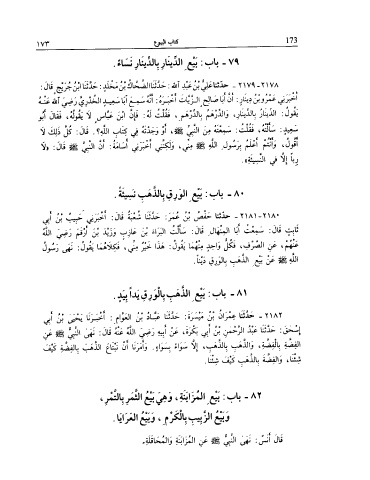 ١٧٣ كتاب البيوع 173
٧٩ - باب: بَيْعِ الدِّينَارِ بِالدِّينَارِ نَسَاءً.
٢١٧٨ - ٢١٧٩ - حدثنا عَلِيُّ بْنُ عَبْدِ اللهِ: حَدَّثَنَا الضَّحَّاكُ بْنُ مَخْلَدٍ: حَدَّثَنَا ابْنُ جُرَيْجٍ قَالَ:
أَخْبَرَنِي عَمْرُو بْنُ دِينَارٍ: أَنَّ أَبَا صَالِحٍ الزَّيَّاتَ أَخْبَرَهُ: أَنَّهُ سَمِعَ أَبَا سَعِيدٍ الْخُدْرِيَّ رَضِيَ اللهُ عَنْهُ
يَقُولُ: الدِّينَارُ بِالدِّينَارِ، وَالدِّرْهَمُ بِالدِّرْهَمِ، فَقُلْتُ لَهُ: فَإِنَّ ابْنَ عَبَّاسٍ لَا يَقُولُهُ، فَقَالَ أَبُو
سَعِيدٍ: سَأَلْتُهُ، فَقُلْتُ: سَمِعْتَهُ مِنَ النَّبِيِّ ﷺ، أَوْ وَجَدْتَهُ فِي كِتَابِ اللهِ؟. قَالَ: كُلَّ ذَلِكَ لَا
أَقُولُ، وَأَنْتُمْ أَعْلَمُ بِرَسُولِ اللهِ ﷺ مِنِّي، وَلَكِنَّنِي أَخْبَرَنِي أُسَامَةُ: أَنَّ النَّبِيَّ ﷺ قَالَ: «لَا
رِبًا إِلَّا فِي النَّسِيئَةِ».
٨٠ - باب: بَيْعِ الْوَرِقِ بِالذَّهَبِ نَسِيئَةً.
٢١٨٠ - ٢١٨١ - حدثنا حَفْصُ بْنُ عُمَرَ: حَدَّثَنَا شُعْبَةُ قَالَ: أَخْبَرَنِي حَبِيبُ بْنُ أَبِي
ثَابِتٍ قَالَ: سَمِعْتُ أَبَا الْمِنْهَالِ قَالَ: سَأَلْتُ الْبَرَاءَ بْنَ عَازِبٍ وَزَيْدَ بْنَ أَرْقَمَ رَضِيَ اللهُ
عَنْهُمْ، عَنِ الصَّرْفِ، فَكُلُّ وَاحِدٍ مِنْهُمَا يَقُولُ: هَذَا خَيْرٌ مِنِّي، فَكِلَاهُمَا يَقُولُ: نَهَى رَسُولُ
اللهِ ﷺ عَنْ بَيْعِ الذَّهَبِ بِالْوَرِقِ دَيْنًا.
٨١ - باب: بَيْعِ الذَّهَبِ بِالْوَرِقِ يَدًا بِيَدٍ.
٢١٨٢ - حدثنا عِمْرَانُ بْنُ مَيْسَرَةَ: حَدَّثَنَا عَبَّادُ بْنُ الْعَوَّامِ: أَخْبَرَنَا يَحْيَى بْنُ أَبِي
إِسْحَقَ: حَدَّثَنَا عَبْدُ الرَّحْمَنِ بْنُ أَبِي بَكْرَةَ، عَنْ أَبِيهِ رَضِيَ اللهُ عَنْهُ قَالَ: نَهَى النَّبِيُّ ﷺ عَنِ
الْفِضَّةِ بِالْفِضَّةِ، وَالذَّهَبِ بِالذَّهَبِ، إِلَّا سَوَاءً بِسَوَاءٍ، وَأَمَرَنَا أَنْ نَبْتَاعَ الذَّهَبَ بِالْفِضَّةِ كَيْفَ
شِئْنَا، وَالْفِضَّةَ بِالذَّهَبِ كَيْفَ شِئْنَا.
٨٢ - باب: بَيْعِ الْمُزَابَنَةِ، وَهِيَ بَيْعُ الثَّمَرِ بِالتَّمْرِ،
وَبَيْعُ الزَّبِيبِ بِالْكَرْمِ، وَبَيْعُ الْعَرَايَا.
قَالَ أَنَسٌ: نَهَى النَّبِيُّ ﷺ عَنِ الْمُزَابَنَةِ وَالْمُحَاقَلَةِ.